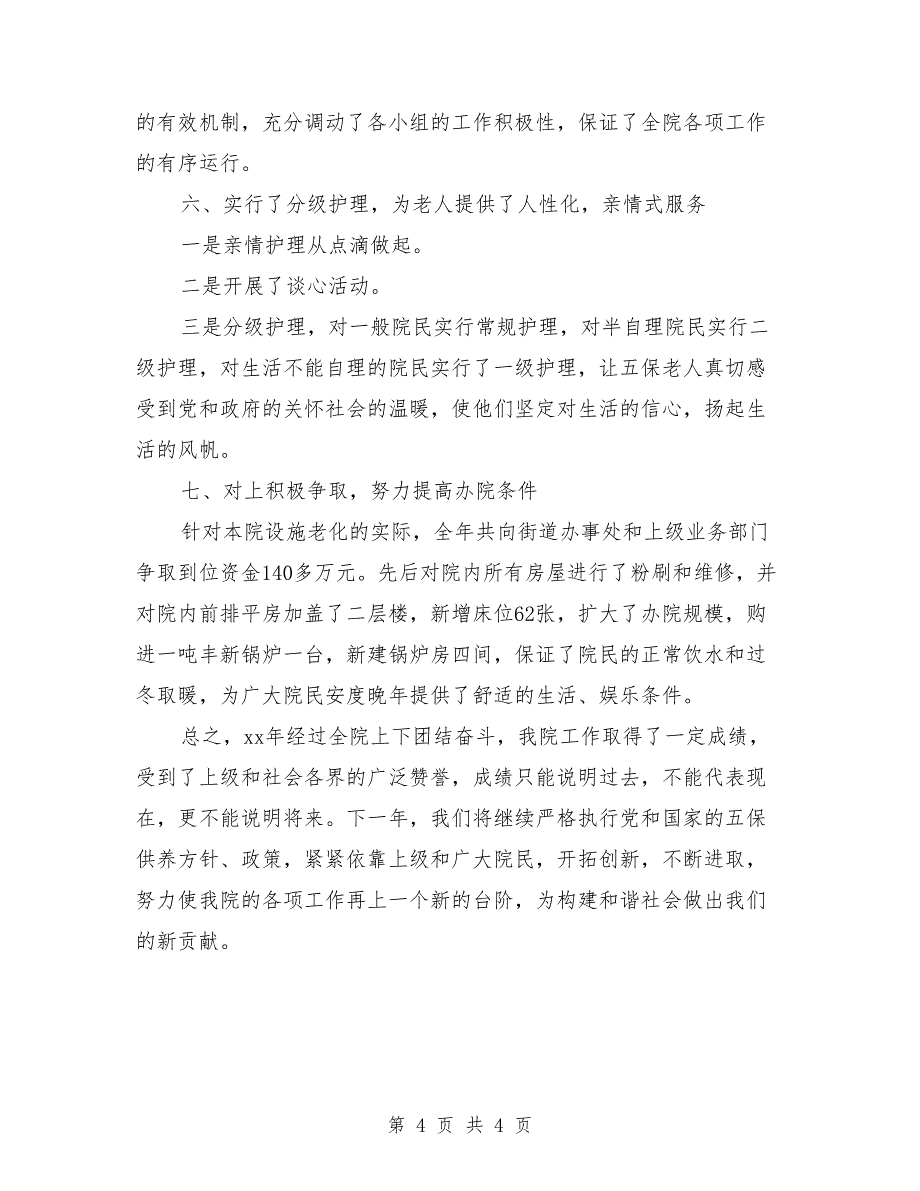 的有效机制，充分调动了各小组的工作积极性，保证了全院各项工作
的有序运行。
六、实行了分级护理，为老人提供了人性化，亲情式服务
一是亲情护理从点滴做起。
二是开展了谈心活动。
三是分级护理，对一般院民实行常规护理，对半自理院民实行二
级护理，对生活不能自理的院民实行了一级护理，让五保老人真切感
受到党和政府的关怀社会的温暖，使他们坚定对生活的信心，扬起生
活的风帆。
七、对上积极争取，努力提高办院条件
针对本院设施老化的实际，全年共向街道办事处和上级业务部门
争取到位资金140多万元。先后对院内所有房屋进行了粉刷和维修，并
对院内前排平房加盖了二层楼，新增床位62张，扩大了办院规模，购
进一吨丰新锅炉一台，新建锅炉房四间，保证了院民的正常饮水和过
冬取暖，为广大院民安度晚年提供了舒适的生活、娱乐条件。
总之，xx年经过全院上下团结奋斗，我院工作取得了一定成绩，
受到了上级和社会各界的广泛赞誉，成绩只能说明过去，不能代表现
在，更不能说明将来。下一年，我们将继续严格执行党和国家的五保
供养方针、政策，紧紧依靠上级和广大院民，开拓创新，不断进取，
努力使我院的各项工作再上一个新的台阶，为构建和谐社会做出我们
的新贡献。
第 4 页 共 4 页